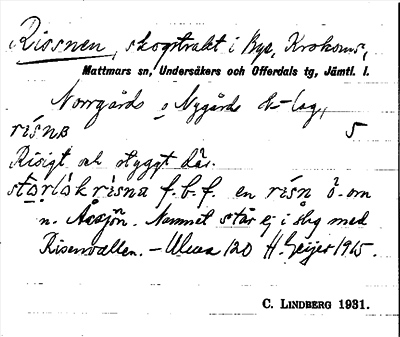 Rissnen, skogstrakt i Byn, Krokoms,
Mattmars sn, Undersåkers och Offerdals tg, Jämtl. l.
Norrgårds o Nygårds sk-lag,
rísnɐ 5
Risigt och styggt där.
risna f.b.f. en rísn ö. om
n. Åasjön. Namnet står ej i slag med
Risenvallen. – Ulvsa 120 H. Geijer 1915.
C. LINDBERG 1931.